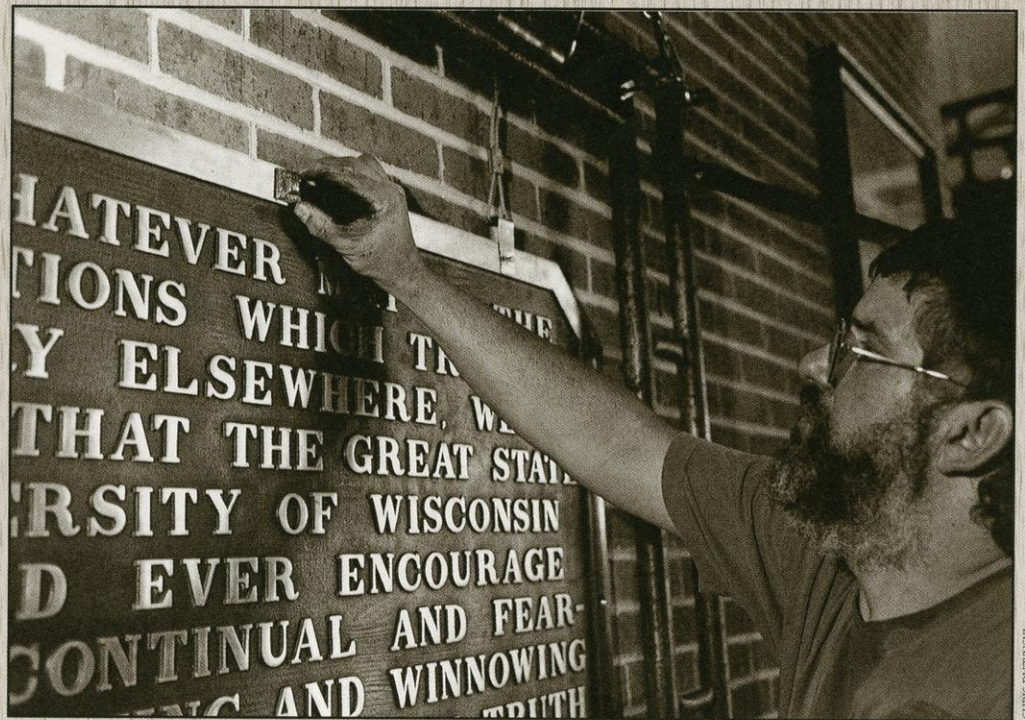 HATEVER THE
TIONS WHICH TR
Y ELSEWHERE, WE
THAT THE GREAT STATE
ERSITY OF WISCONSIN
D EVER ENCOURAGE
CONTINUAL AND FEAR-
ING AND WINNOWING
TRUTH